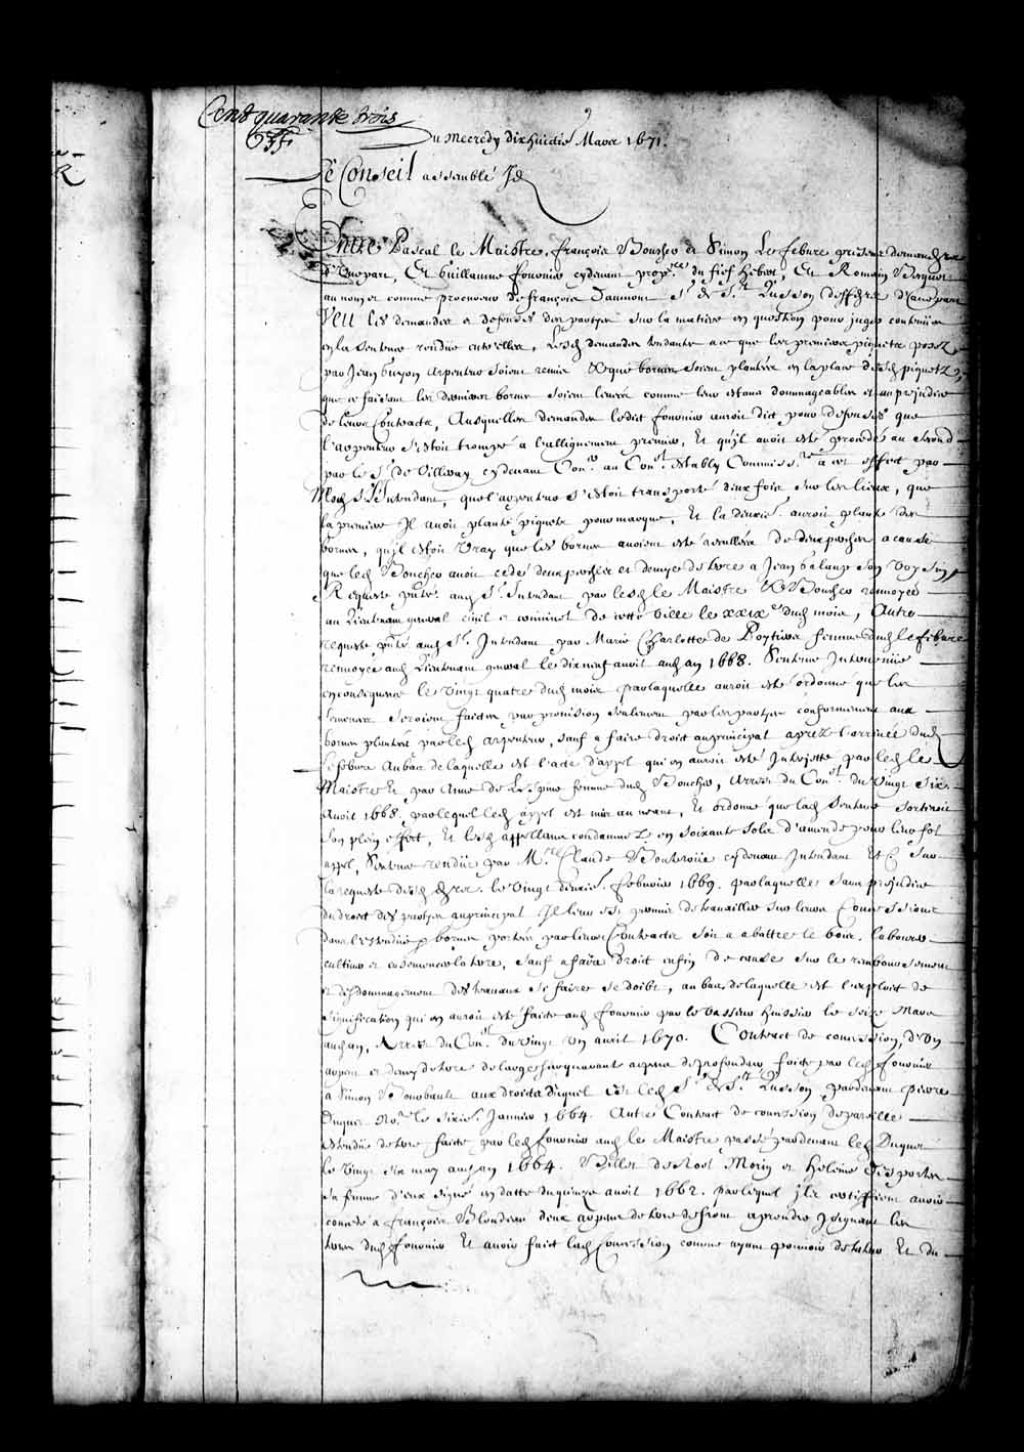 Cent quarante trois
Du Mecredy dix huictie Mars 1671.
Le Conseil assemblé
Entre Pascal le Maistre, françois Boucher et Simon Lefebure demandeurs
d'une part, Et Guillaume fournier cydevant propre du fief hebert, Et Romain Becquet
au nom et comme procureur de françois Daumont Sr de St Lusson deffendeurs d'autre part
Veu les demandes et defenses des partyes sur la matiere en question pour juger contenües
en la Sentence rendüe entr'elles, Lesd demandes tendantes a ce que les premiers piquetz posez
par Jean Guyon arpenteur soient remis Et que bornes soient plantées en la place desd piquetz,
que ce faisant les dernieres bornes soient levées comme leur estans dommageables et au prejudice
de leurs Contracts, Ausquelles demandes ledict fournier auroit dict pour defenses que
l'arpenteur s'estoit trompé a l'allignement premier, Et qu'il avoit esté procedé au Second
par le Sr de Villeray cydevant Conr au Conl estably Commissre a cet effect par
Mond Sr l'Intendant, que l'arpenteur s'estoit transporté deux fois sur les lieux, que
la premiere Il avoit planté piquets pour marque, Et la deuxie auroit planté des
bornes, qu'il estoit vray que les bornes avoient esté reculées de deux perches a cause
que led Boucher avoit cedé deux perches et demye de terre a Jean Galarneau son voysin,
Requeste pntée aud Sr Intendant par lesd le Maistre Et Boucher renvoyée
au Lieutenant general civil et criminel de cette ville le xxixe dud mois, Autre
requeste pntée aud Sr Intendant par Marie Charlotte de Poytiers femme dud lefebure
renvoyée aud Lieutenant general le dix neuf avril aud an 1668. Sentence Intervenüe
en consequence le vingt quatre dud mois par laquelle auroit esté ordonné que les
semences seroient faictes par provision seulement par les partyes conformement aux
bornes plantées par led arpenteur, sauf a faire droit au principal apres l'arrivée dud
Lefebure Au bas de laquelle est l'acte d'appel qui en auroit esté Interjetté par led le
Maistre Et par Anne de Lespine femme dud Boucher, Arrest du Conl du vingt six
Avril 1668. par lequel led appel est mis au neant, Et ordonné que lad Sentence sortiroit
son plein effect, Et lesd appellans condamnez en soixante solz d'amende pour leur fol
appel, Sentence rendüe par Mre Claude Bouteroüe cydevant Intendant Etc. Sur
la requeste desd le vingt deuxie febvrier 1669. par laquelle sans prejudice
du droict des partyes au principal Il leur est permis de travailler sur leurs Concessions
dans l'estendüe et bornes portées par leurs Contracts soit a abattre le bois, labourer
cultiver et ensemencer la terre, sauf a faire droit enfin de cause sur le remboursement
et desdommagement des travaux si faire se doibt, au bas de laquelle est l'exploict de
signification qui en auroit esté faicte aud fournier par le vasseur huissier le seize Mars
aud an, Arrest du Conl du vingt un avril 1670. Contract de concession, d'un
arpent et demy de terre de large sur quarante arpens de profondeur faicte par led fournier
a Simon aux droicts duquel est led Sr de St Lusson pardevant pierre
Duquet Nore le sixie Janvier 1664. Autre Contract de concession de pareille
estendüe de terre faicte par led fournier aud le Maistre passé pardevant led Duquet
le vingt six may aud an 1664. Billet de Noel Morin et helene desportes
sa femme d'eux signé en datte du quinze avril 1662. par lequel ilz certiffient avoir
concedé a françois Blondeau deux arpens de terre de front a prendre joignant les
terres dud fournier Et avoir faict lad Concession comme ayant pouvoir de tuteur Et du